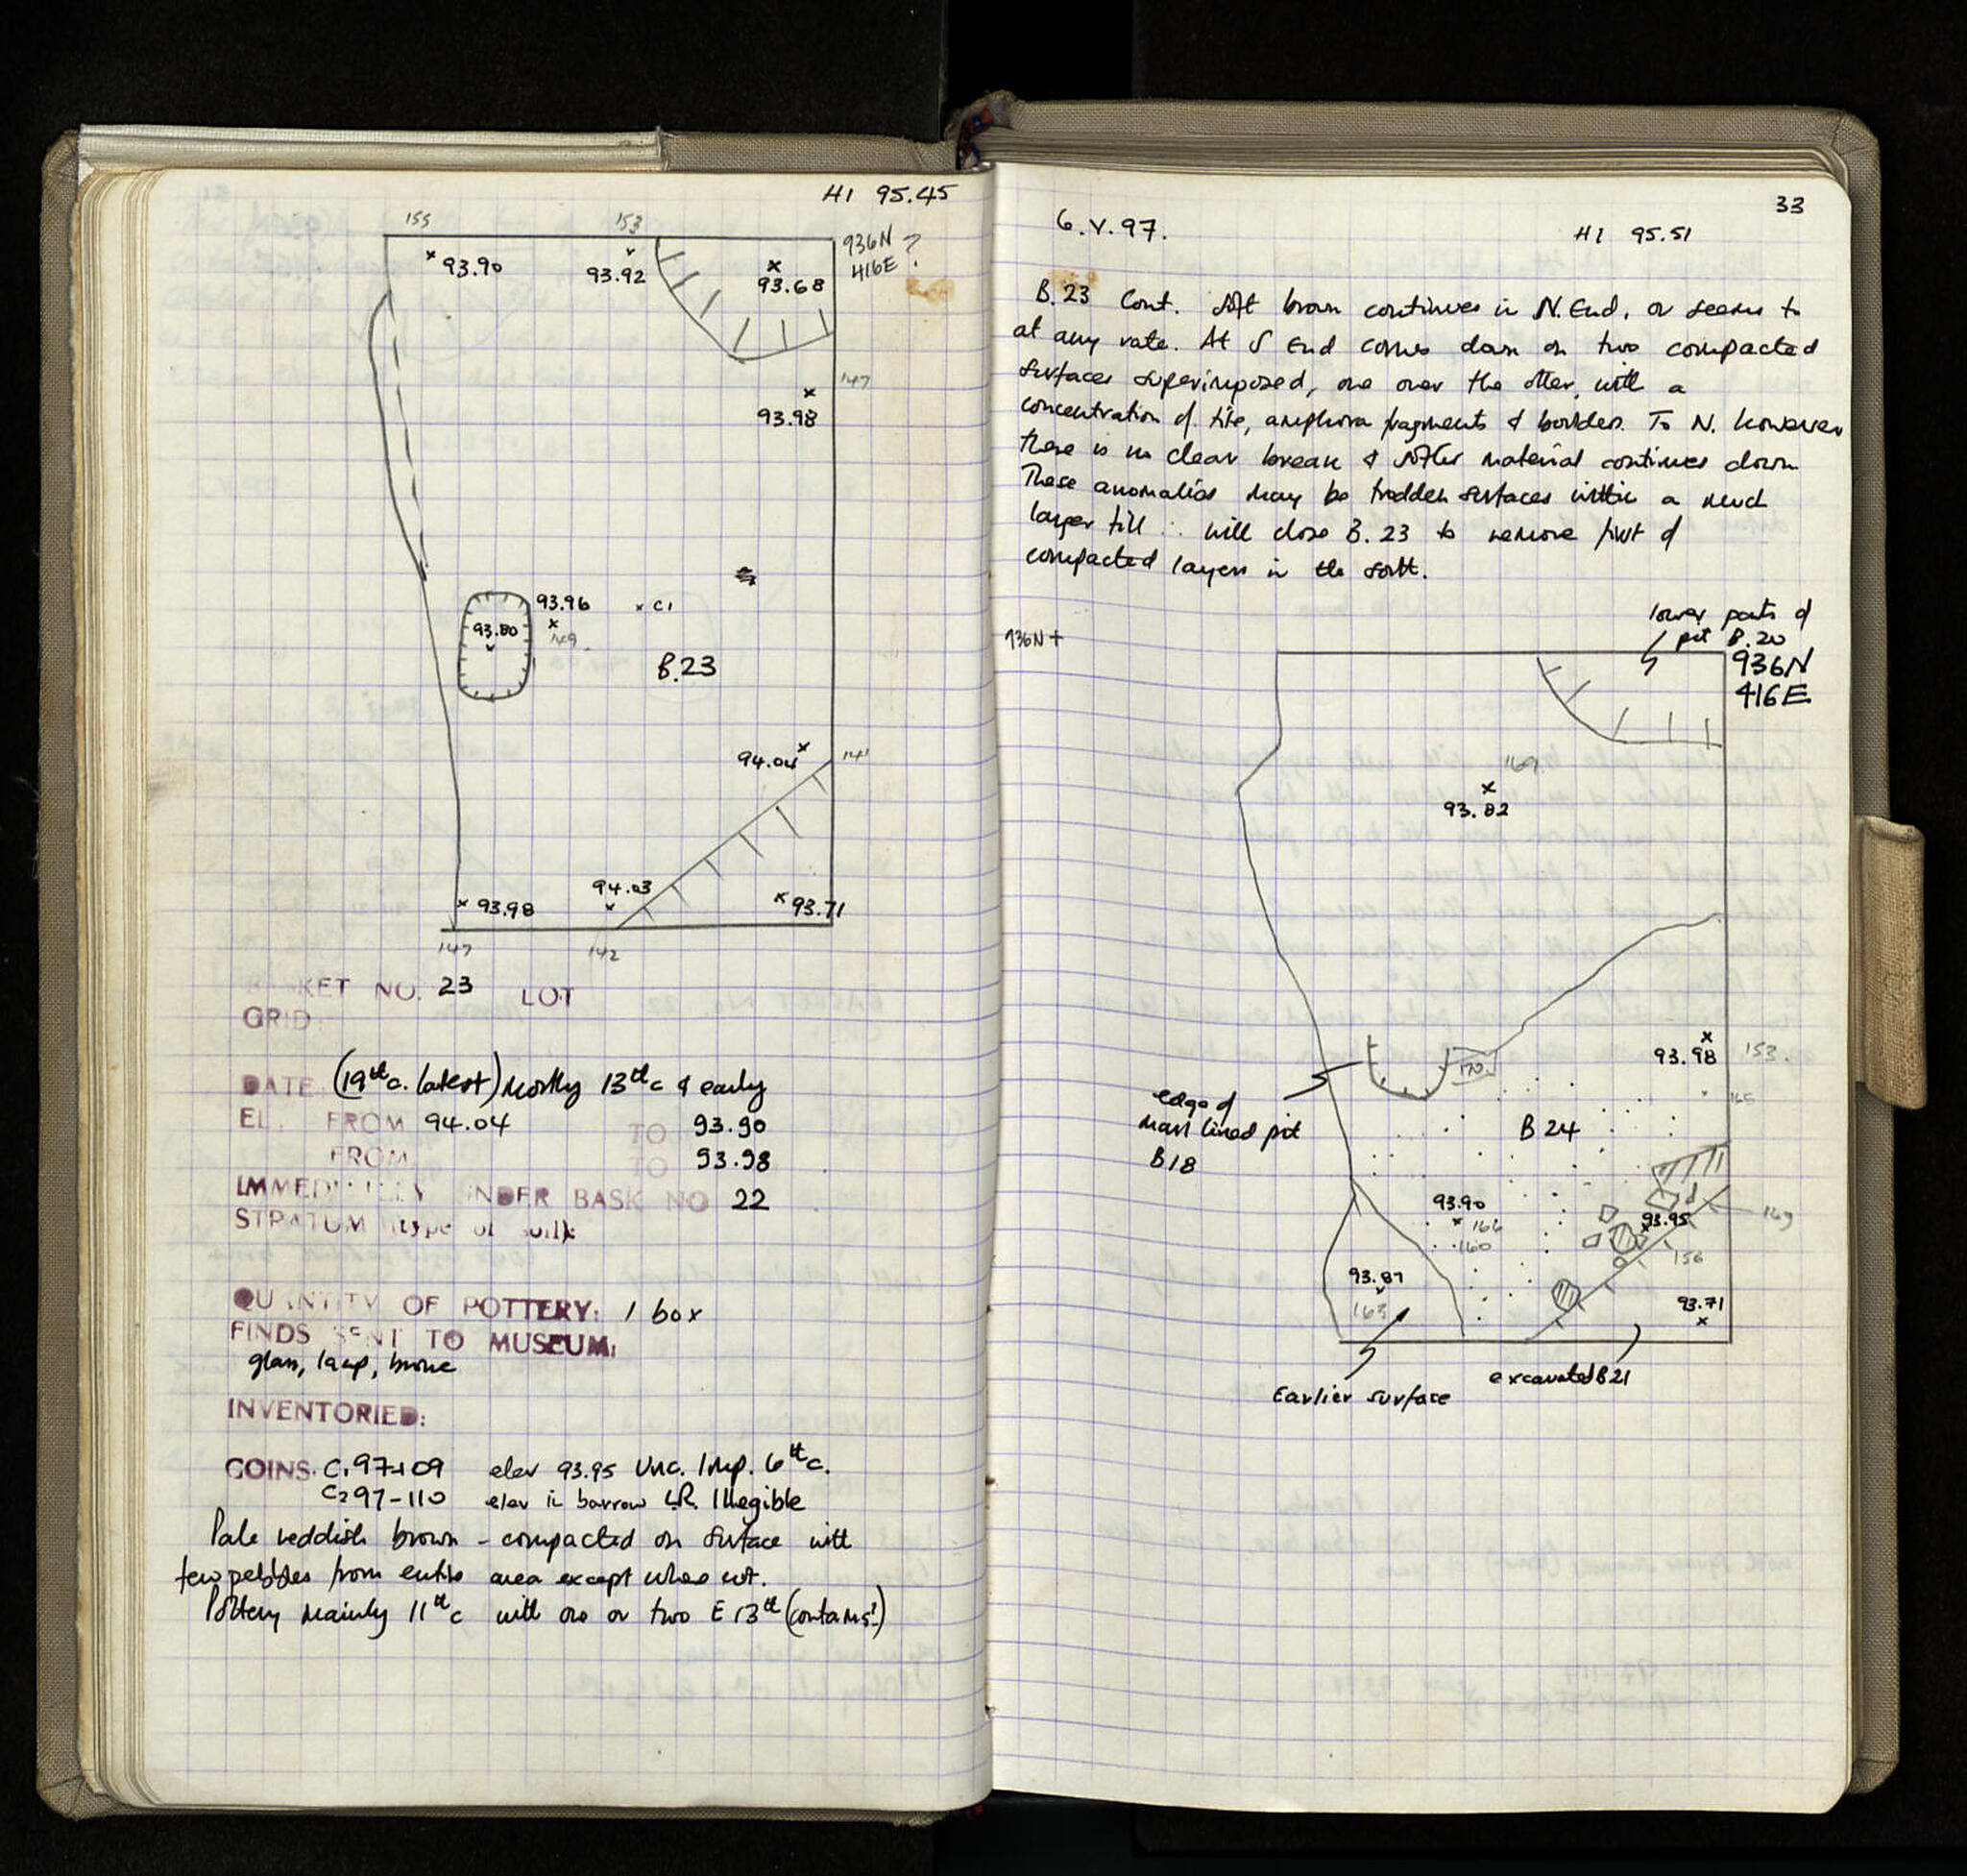 HI 95.45
155
153
936N ?
416E
93.90
93.92
93.68
147
93.98
93.96
C1
93.80
149
B.23
94.04
141
94.03
93.98
93.71
147
142
BASKET NO. 23 LOT
GRID:
DATE: (19th c. latest) Mostly 13th c & early
EL. FROM 94.04 TO 93.90
FROM TO 93.98
IMMEDIATELY UNDER BASK NO 22
STRATUM (type of soil):
QUANTITY OF POTTERY: 1 box
FINDS SENT TO MUSEUM:
glass, lamp, bronze
INVENTORIED:
COINS. C1 97-109 elev 93.95 Unc. Imp. 6th c.
C2 97-110 elev in barrow LR. Illegible
Pale reddish brown - compacted on surface with
few pebbles from entire area except where cut.
Pottery mainly 11th c with one or two E 13th (contams!)
33
6.V.97.
HI 95.51
B.23 Cont. Soft brown continues in N. End, or seems to
at any rate. At S End comes down on two compacted
surfaces superimposed, one over the other, with a
concentration of tile, amphora fragments & boulders. To N. however
there is no clear break & softer material continues down
These anomalies may be trodden surfaces within a much
larger fill ∴ will close B.23 to remove first of
compacted layers in the south.
lower parts of
pit B.20
936N+
936N
416E
169
93.82
93.98
153
165
170
edge of
marl lined pit
B18
B 24
93.90
166
160
93.95
169
156
93.87
163
93.71
excavated B21
Earlier surface